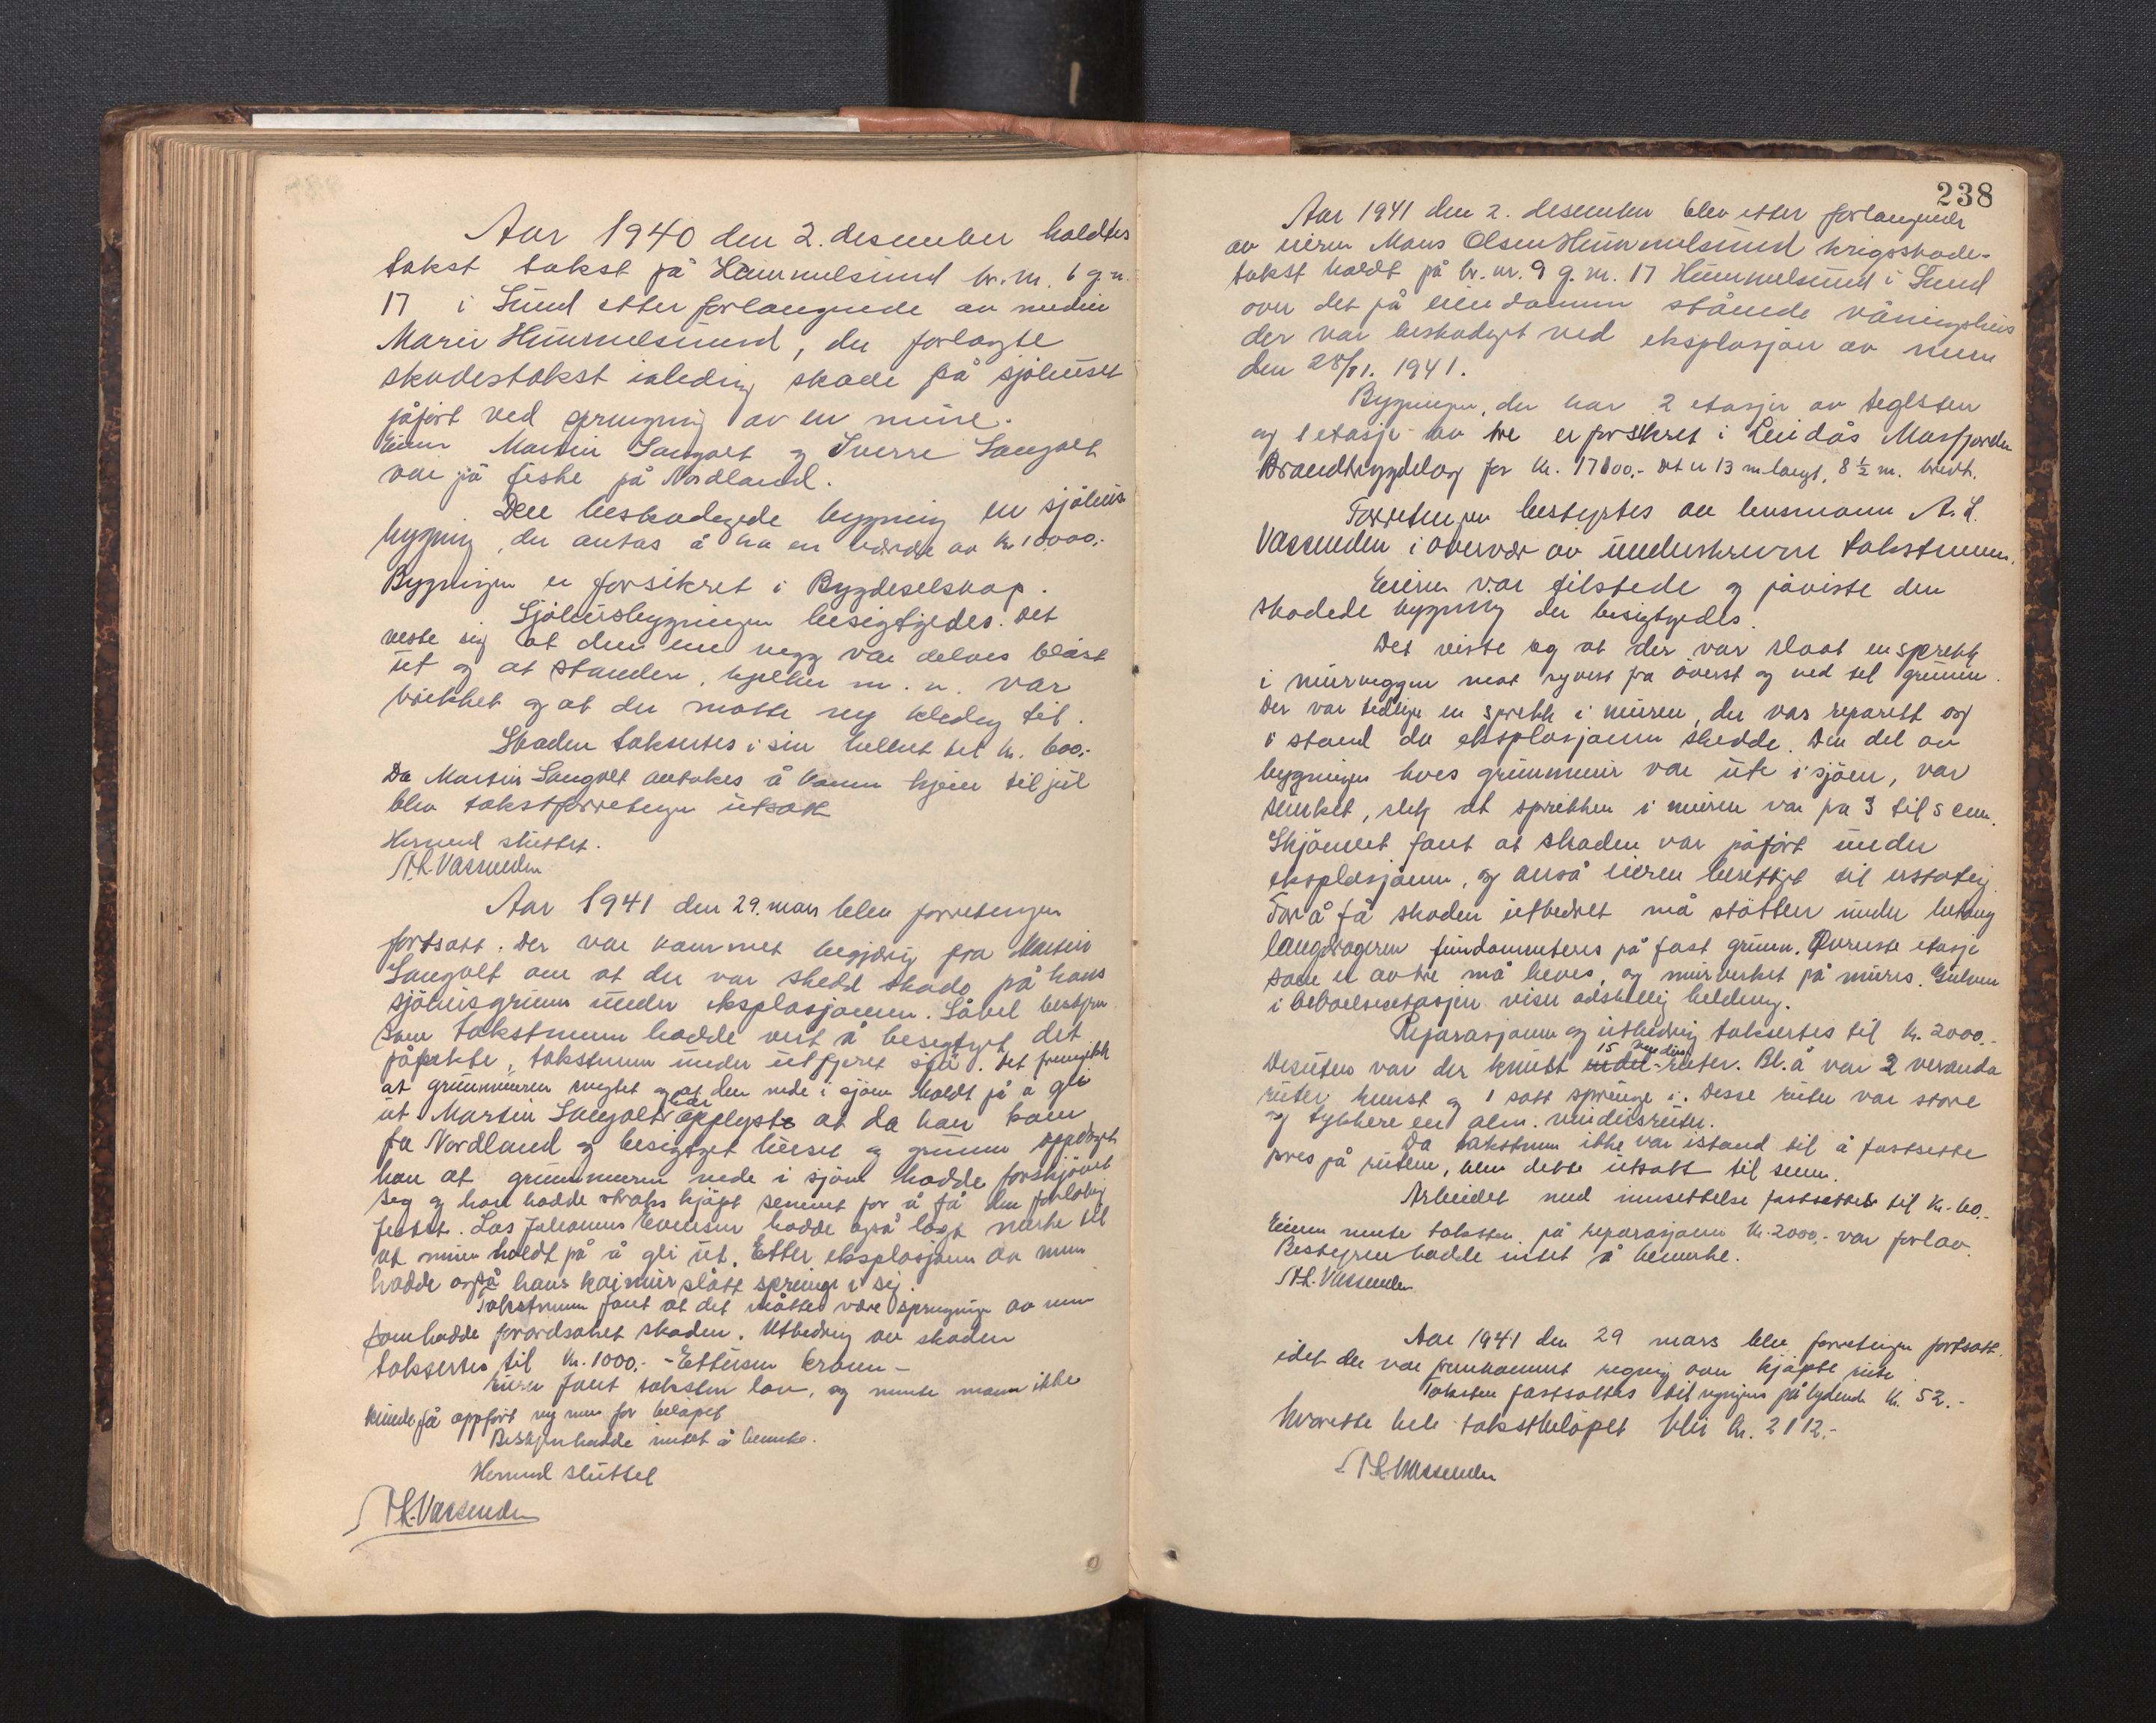 Aar 1940 den 2. desember holdtes
takst takst på Himmelsund br. nr. 6 g.n.
17 i Sund etter forlangende av
Marie Himmelsund, der forlagte
skadestakst skade på sjöhuset
påfört ved sprengning av en mine.
Eieren Martin Sangolt og Sverre Sangolt
var på fiske på Nordland.
Den beskadigede bygning er sjöhus
bygning, der antas å ha en verdi av kr 10000.-
Bygningen er forsikret i Bygdeselskap.
Sjöhusbygningen besigtigedes. Det
viste sig at den ene vegg var delvis blåst
ut og at stander, bjelker m. v. var
vrikket og at der måtte ny kledning til.
Skaden taksertes i sin helhet til kr. 600.-
Da Martin Sangolt antakes å komme hjem til jul
blev takstforretningen utsatt
Hermed sluttet.
A. L. Vassenden
Aar 1941 den 29. mars blev forretningen
fortsatt. Der var kommet begjæring fra Martin
Sangolt om at der var skedd skade på hans
sjöhusgrunn under eksplosjonen. Såvel bestyrer
som takstmenn hadde vert å besigtiget det
påpekte, takstmenn under utfjæret sjö. Det fremgikk
at grunnmuren svigtet og at den nede i sjöen holdt på å gli
ut Martin Sangolt har opplyst at da han kom
fra Nordland og besigtiget huset og grunnen oppdaget
han at grunnmuren nede i sjöen hadde forskjövet
seg og han hadde straks kjöpt sement for å få den forlöbig
festet. Lars Johannes hadde også lagt merke til
at muren holdt på å gli ut. Etter eksplosjonen av minen
hadde også hans kaimur slått sprenge i sig.
Takstmenn fant at det måtte være sprengningen av minen
som hadde forårdsaket skaden. Utbedring av skaden
taksertes til kr. 1000.- - Ettusen kroner -
Eieren fant taksten lav, og mente mann ikke
kunde få oppfört ny mur for belöpet
Bestyren hadde intet å bemerke.
Hermed sluttet
A. L. Vassenden
238
Aar 1941 den 2. desember blev etter forlangende
av eieren Mons Olsen Himmelsund krigsskade-
takst holdt på br. nr. 9 g. nr. 17 Himmelsund i Sund
over det på eiendommen stående våningshus
der var beskadiget ved eksplosjon av mine
den 28/11. 1941.
Bygningen, der har 2 etasjer av teglsten
og 1 etasje av tre er forsikret i Lindås Masfjorden
Brandtrygdelag for kr. 17100.- Det er 13 m. langt, 8 ½ m. bredt.
Forretningen bestyrtes av lensmann A. L.
Vassenden i overvær av underskrevne takstmenn.
Eieren var tilstede og påviste den
skadede bygning der besigtigedes.
Det viste og at der var slaat en sprekk
i murveggen mot syvest fra överst og ned til grunnen.
Der var tidligere en sprekk i muren, der var reparert og
i stand da eksplosjonen skedde. Den del av
bygningen hves grunnmur var ute i sjöen, var
sunket, slik at sprekken i muren var fra 3 til 5 cm.
Skjönnet fant at skaden var påfört under
eksplosjonen, og anså eieren berettiget til erstating.
For å få skaden utbedret må stötten under betong
langdrageren fundamenteres på fast grunn. Överste etasje
som er av tre må heves, og murverket på mures. Gulvene
i beboelsesetasjen viser adskillig heldning.
Reparasjonen og utbedring taksertes til kr. 2000.-
Desuten var der knust 15 vindusruter. Bl. å var 2 veranda
ruter knust og 1 satt sprenge i. Desse ruter var store
og tykkere en alm. vindusruter.
Da takstmenn ikke var istand til å fastsette
pris på rutene, blev dette utsatt til senere.
Arbeidet med innsettelse fastsettes til kr. 60.-
Eieren mente taksten på reparasjonen kr. 2000.- var for lav.
Bestyren hadde intet å bemerke.
A. L. Vassenden
Aar 1941 den 29 mars blev forretningen fortsatt.
idet der var fremkommet regning over kjöpte ruter
Taksten fastsattes til regningens på lydende kr. 52.-
hvorette hele takstbelöpet blir kr. 2112.-
A. L. Vassenden